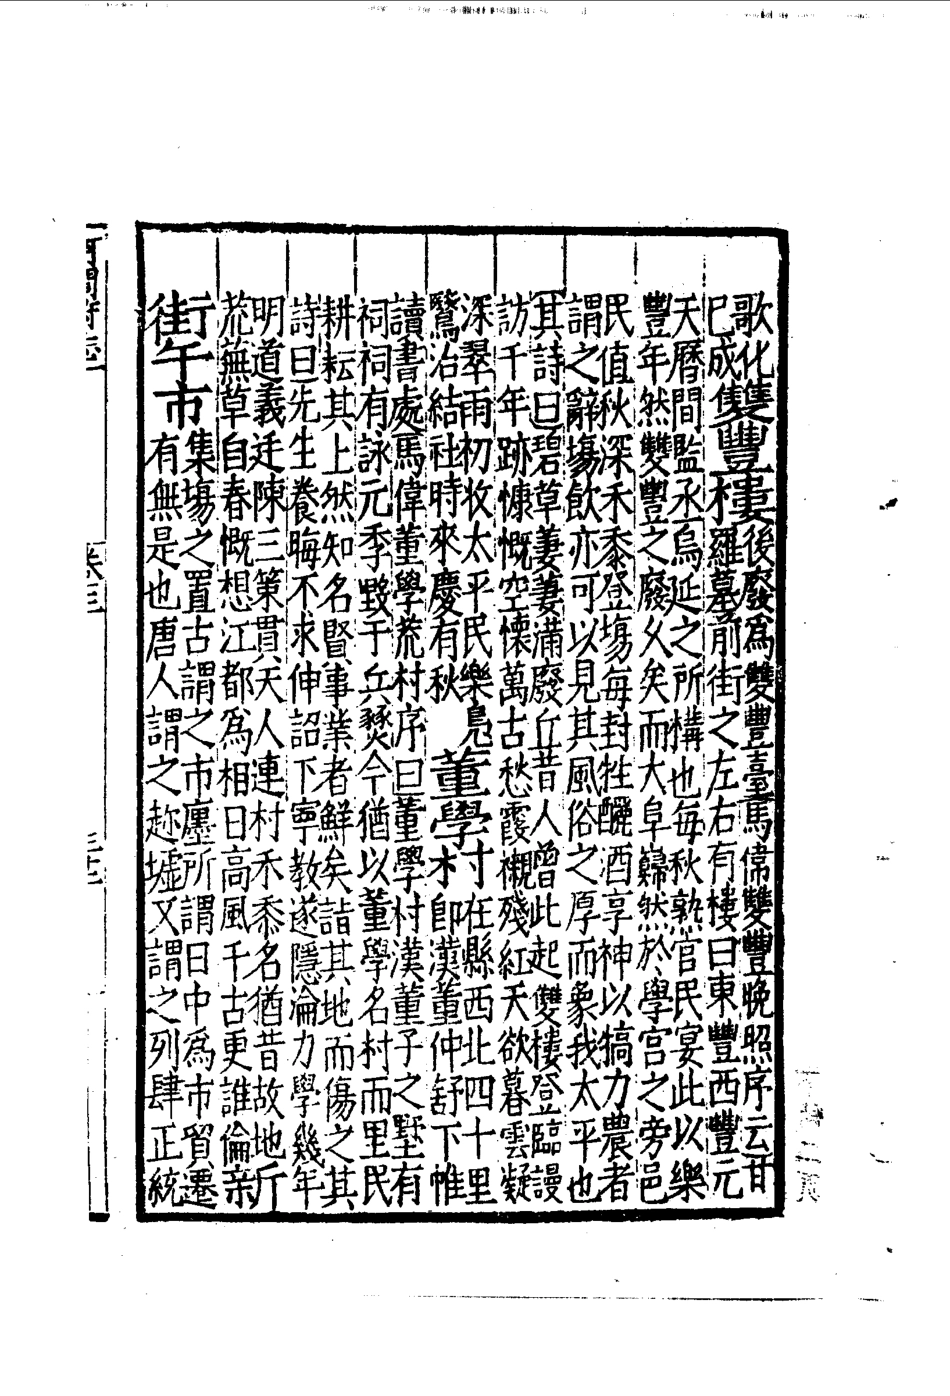 歌化
已成
雙豐樓
後廢爲雙豐臺馬偉雙豐晚照序云甘
羅墓前街之左右有樓曰東豐西豐元
天曆間監丞烏延之所構也每秋熟官民宴此以樂
豐年然雙豐之廢久矣而大阜巋然於學宮之旁邑
民值秋深禾黍登塲每封牲釃酒享神以犒力農者
謂之辭塲飲亦可以見其風俗之厚而象我太平也
其詩曰碧草萋萋滿廢丘昔人曾此起雙樓登臨謾
訪千年跡慷慨空懷萬古愁霞襯殘紅天欲暮雲凝
深翠雨初收太平民樂鳧
鷖治結社時來慶有秋
董學村
在縣西北四十里
即漢董仲舒下帷
讀書處馬偉董學荒村序曰董學村漢董子之墅有
祠祠有詠元季毀于兵燹今猶以董學名村而里民
耕耘其上然知名賢事業者鮮矣詣其地而傷之其
詩曰先生養晦不求伸詔下寧教遂隱淪力學幾年
明道義廷陳三策貫天人連村禾黍名猶昔故地
荒蕪草自春慨想江都為相日高風千古更誰倫
新街午市
集塲之置古謂之市廛所謂日中爲市貿遷
有無是也唐人謂之趂墟又謂之列肆正統
河間府志
卷三